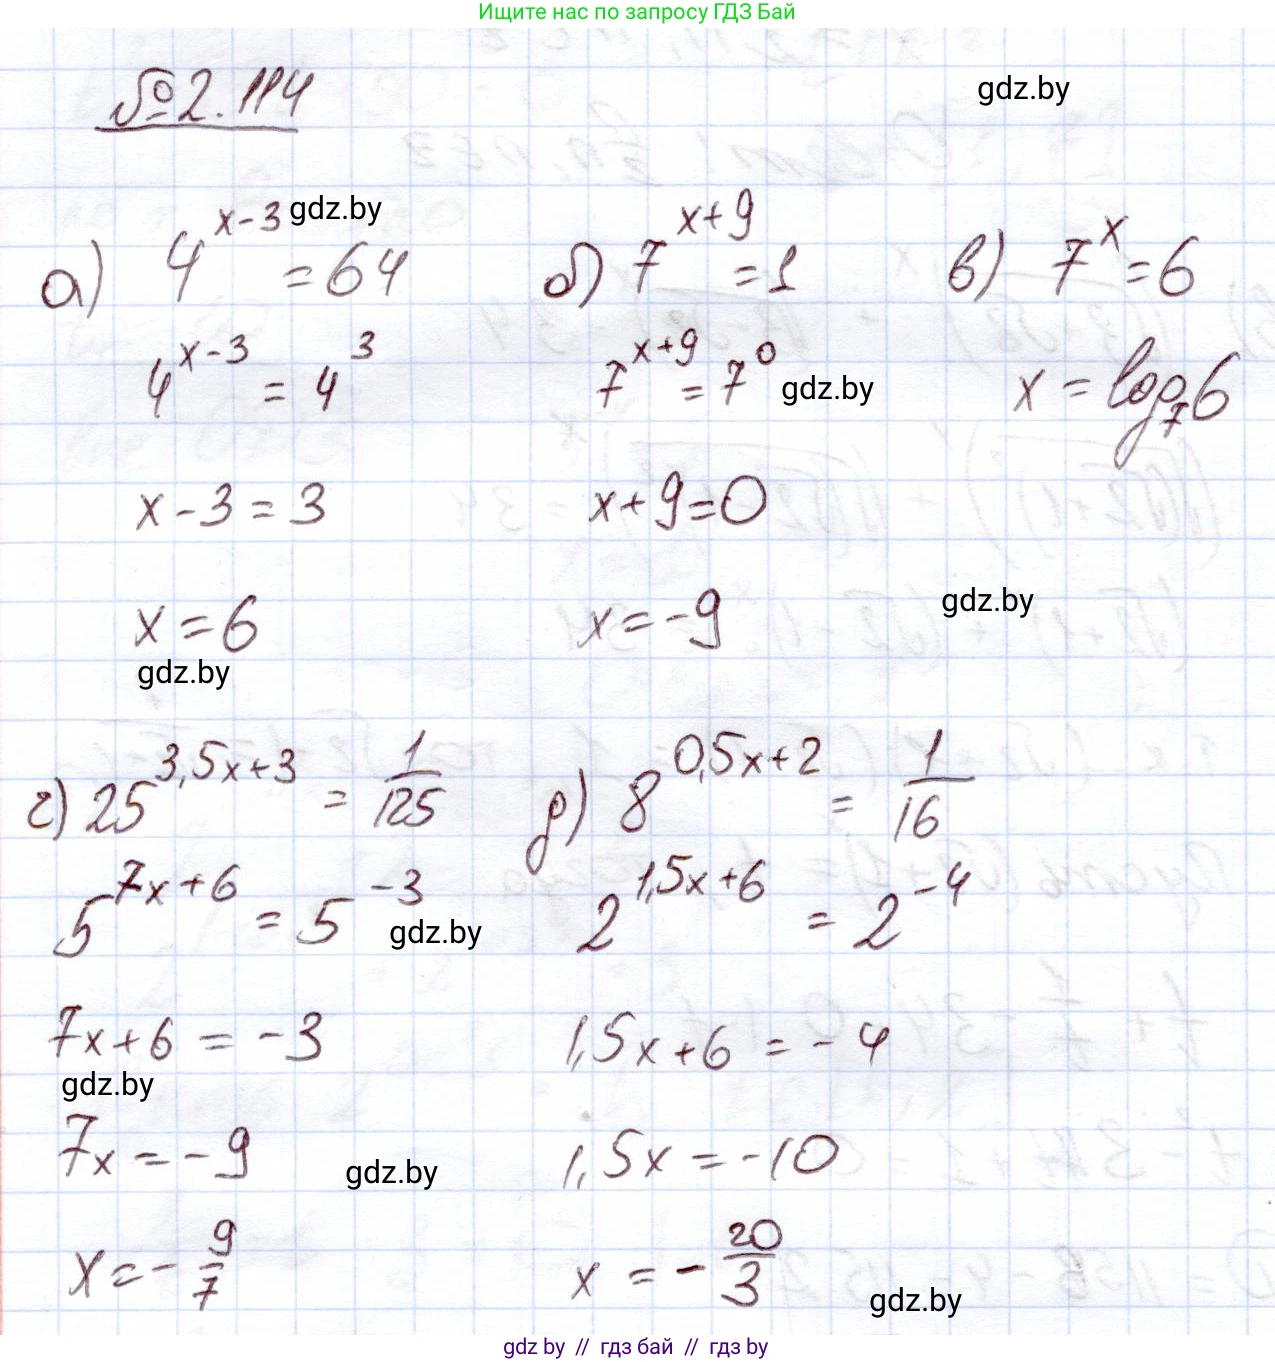 Ищите нас по запросу ГДЗ Бай
№2.114
gdz.by
а) 4^{x-3} = 64 gdz.by
4^{x-3} = 4^3
x-3=3
x=6
gdz.by
б) 7^{x+9} = 1
7^{x+9} = 7^0 gdz.by
x+9=0
x=-9
в) 7^x = 6
x = log_7 6
gdz.by
г) 25^{3,5x+3} = 1/125
5^{7x+6} = 5^{-3}
gdz.by
7x+6 = -3
gdz.by
7x = -9
gdz.by
x = -9/7
д) 8^{0,5x+2} = 1/16
2^{1,5x+6} = 2^{-4}
1,5x+6 = -4
1,5x = -10
x = -20/3
gdz.by
gdz by // гдз бай // гдз by